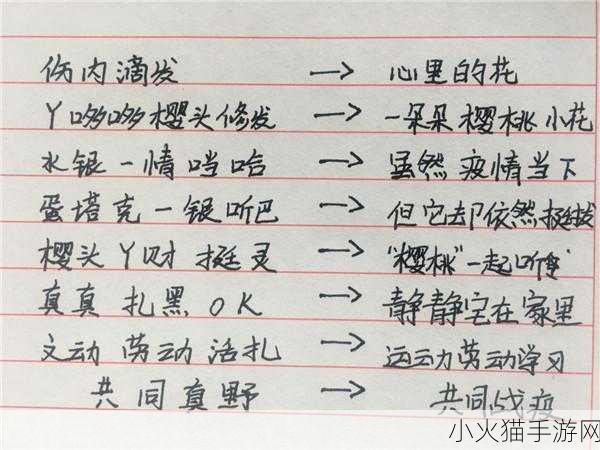 伤内滴发 → 心里的花
丫哆哆樱头修发 → 一朵朵樱桃小花
水银一情当哈 → 虽然疫情当下
蛋塔克一银听巴 → 但它却依然挺拔
樱头丫财挺灵 → "樱桃"一起听令
真真扎黑OK → 静静宅在家里
文动劳动活扎 → 运动劳动学习
共同真野 → 共同战疫
小火猫手游网